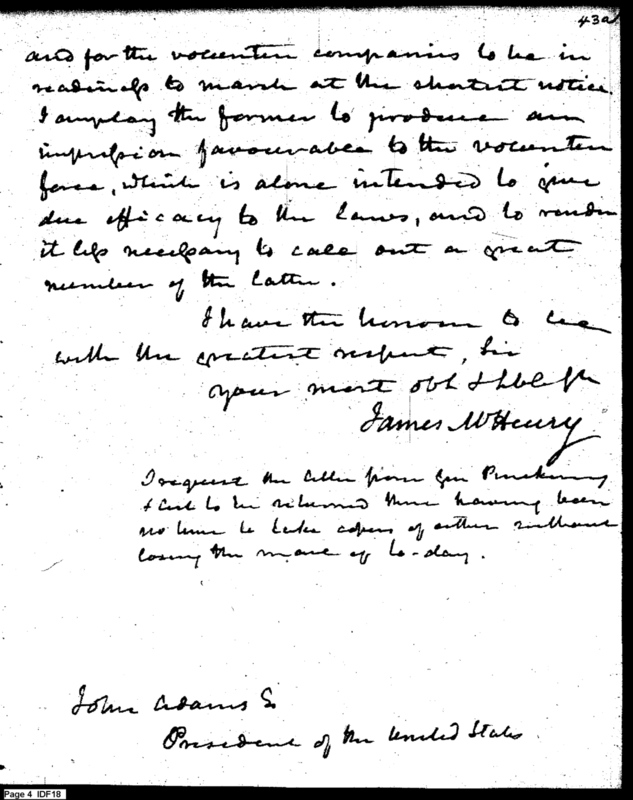 43a
and for the volunteer companies to be in
readiness to march at the shortest notice.
I employ the former to produce an
impression favourable to the volunteer
force, which is alone intended to give
due efficacy to the laws, and to render
it less necessary to call out a great
number of the latter.
I have the honour to be
with the greatest respect, Sir
your most obt & hble
James McHenry
I request the letter from Gen Pinckney
to be returned there having been
no time to take copies of either without
losing the male of to-day.
John Adams
President of the United States
Page 4 IDF18